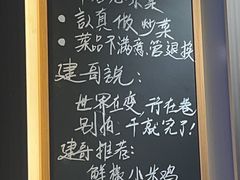 • 認真做炒菜
• 菜品不滿意.管退換
建哥説:
世界在变 行在卷
别怕 干就完了!
建哥推荐:
鲜椒小米鸡